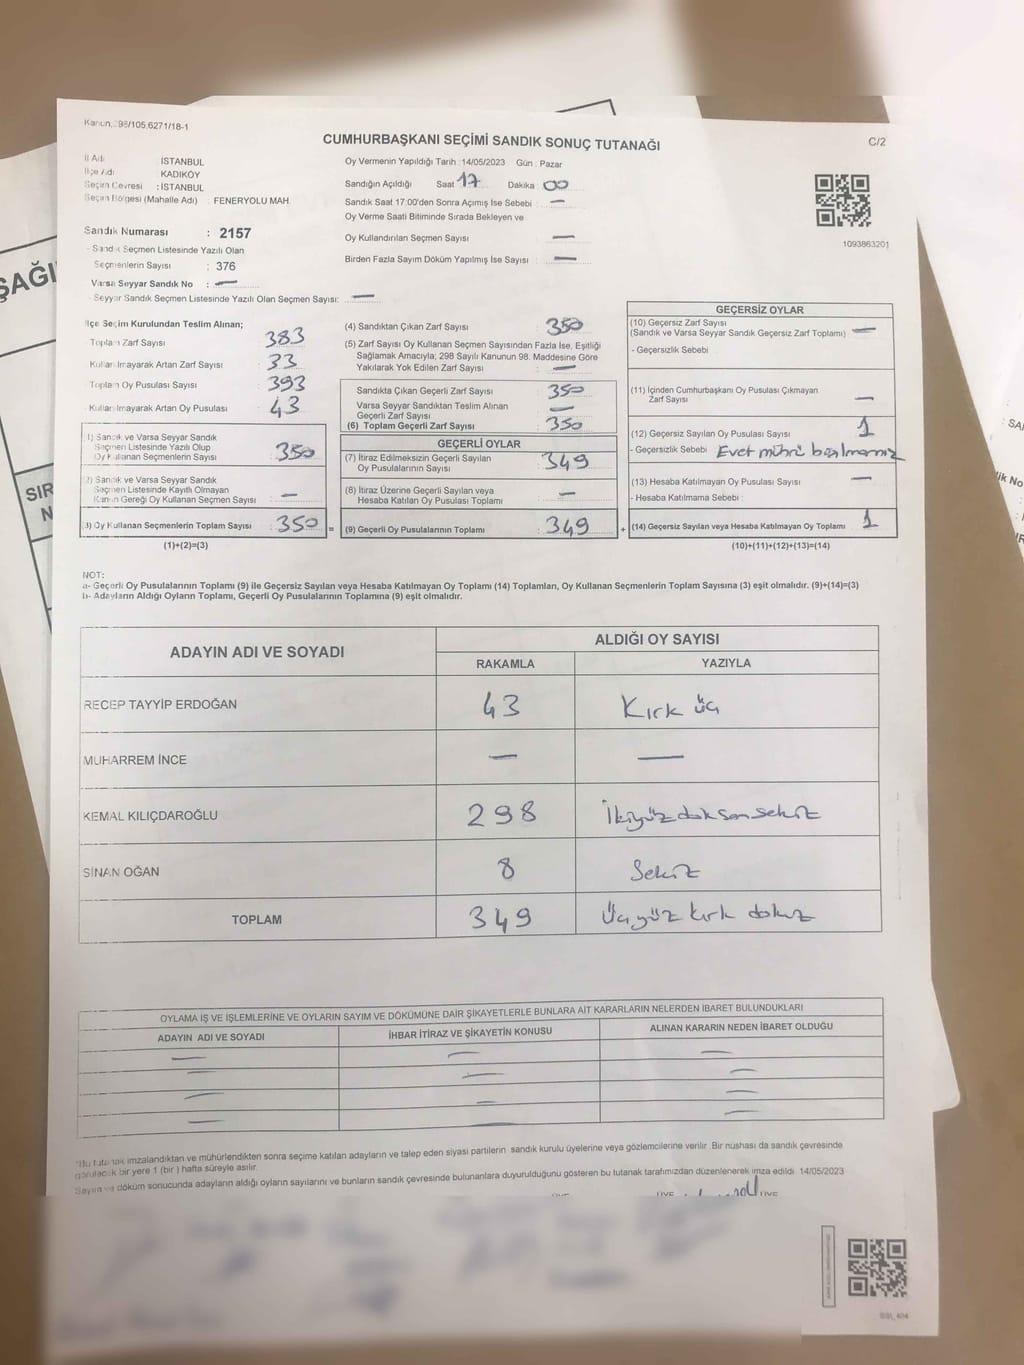 Kanun.:298/105,6271/18-1
CUMHURBAŞKANI SEÇİMİ SANDIK SONUÇ TUTANAĞI
C/2
İl Adı : İSTANBUL
İlçe Adı : KADIKÖY
Seçim Çevresi : İSTANBUL
Seçim Bölgesi (Mahalle Adı) : FENERYOLU MAH.
Oy Vermenin Yapıldığı Tarih : 14/05/2023 Gün : Pazar
Sandığın Açıldığı Saat 17 Dakika 00
Sandık Saat 17:00'den Sonra Açımış İse Sebebi : —
Oy Verme Saati Bitiminde Sırada Bekleyen ve
Oy Kullandırılan Seçmen Sayısı : —
Birden Fazla Sayım Döküm Yapılmış İse Sayısı : —
1093863201
Sandık Numarası : 2157
- Sandık Seçmen Listesinde Yazılı Olan
Seçmenlerin Sayısı : 376
Varsa Seyyar Sandık No : —
- Seyyar Sandık Seçmen Listesinde Yazılı Olan Seçmen Sayısı: —
İlçe Seçim Kurulundan Teslim Alınan;
Toplam Zarf Sayısı : 383
Kullanılmayarak Artan Zarf Sayısı : 33
Toplam Oy Pusulası Sayısı : 393
Kullanılmayarak Artan Oy Pusulası : 43
(1) Sandık ve Varsa Seyyar Sandık
Seçmen Listesinde Yazılı Olup
Oy Kullanan Seçmenlerin Sayısı : 350
(2) Sandık ve Varsa Seyyar Sandık
Seçmen Listesinde Kayıtlı Olmayan
Kanun Gereği Oy Kullanan Seçmen Sayısı : —
(3) Oy Kullanan Seçmenlerin Toplam Sayısı : 350 =
(1)+(2)=(3)
(4) Sandıktan Çıkan Zarf Sayısı : 350
(5) Zarf Sayısı Oy Kullanan Seçmen Sayısından Fazla İse, Eşitliği
Sağlamak Amacıyla; 298 Sayılı Kanunun 98. Maddesine Göre
Yakılarak Yok Edilen Zarf Sayısı : —
Sandıkta Çıkan Geçerli Zarf Sayısı : 350
Varsa Seyyar Sandıktan Teslim Alınan
Geçerli Zarf Sayısı : —
(6) Toplam Geçerli Zarf Sayısı : 350
GEÇERLİ OYLAR
(7) İtiraz Edilmeksizin Geçerli Sayılan
Oy Pusulalarının Sayısı : 349
(8) İtiraz Üzerine Geçerli Sayılan veya
Hesaba Katılan Oy Pusulası Toplamı : —
(9) Geçerli Oy Pusulalarının Toplamı : 349 +
GEÇERSİZ OYLAR
(10) Geçersiz Zarf Sayısı
(Sandık ve Varsa Seyyar Sandık Geçersiz Zarf Toplamı) —
- Geçersizlik Sebebi
(11) İçinden Cumhurbaşkanı Oy Pusulası Çıkmayan
Zarf Sayısı : —
(12) Geçersiz Sayılan Oy Pusulası Sayısı : 1
- Geçersizlik Sebebi Evet mührü basılmamış
(13) Hesaba Katılmayan Oy Pusulası Sayısı : —
- Hesaba Katılmama Sebebi :
(14) Geçersiz Sayılan veya Hesaba Katılmayan Oy Toplamı : 1
(10)+(11)+(12)+(13)=(14)
NOT:
a- Geçerli Oy Pusulalarının Toplamı (9) ile Geçersiz Sayılan veya Hesaba Katılmayan Oy Toplamı (14) Toplamları, Oy Kullanan Seçmenlerin Toplam Sayısına (3) eşit olmalıdır. (9)+(14)=(3)
b- Adayların Aldığı Oyların Toplamı, Geçerli Oy Pusulalarının Toplamına (9) eşit olmalıdır.
ADAYIN ADI VE SOYADI
ALDIĞI OY SAYISI
RAKAMLA YAZIYLA
RECEP TAYYİP ERDOĞAN 43 Kırk üç
MUHARREM İNCE — —
KEMAL KILIÇDAROĞLU 298 İkiyüzdoksansekiz
SİNAN OĞAN 8 Sekiz
TOPLAM 349 Üçyüz kırk dokuz
OYLAMA İŞ VE İŞLEMLERİNE VE OYLARIN SAYIM VE DÖKÜMÜNE DAİR ŞİKAYETLERLE BUNLARA AİT KARARLARIN NELERDEN İBARET BULUNDUKLARI
ADAYIN ADI VE SOYADI İHBAR İTİRAZ VE ŞİKAYETİN KONUSU ALINAN KARARIN NEDEN İBARET OLDUĞU
— — —
— — —
— — —
— — —
*Bu tutanak imzalandıktan ve mühürlendikten sonra seçime katılan adayların ve talep eden siyasi partilerin sandık kurulu üyelerine veya gözlemcilerine verilir. Bir nüshası da sandık çevresinde
görülecek bir yere 1 (bir) hafta süreyle asılır.
Sayım ve döküm sonucunda adayların aldığı oyların sayılarını ve bunların sandık çevresinde bulunanlara duyurulduğunu gösteren bu tutanak tarafımızdan düzenlenerek imza edildi. 14/05/2023
ŞAĞI
SIR
N